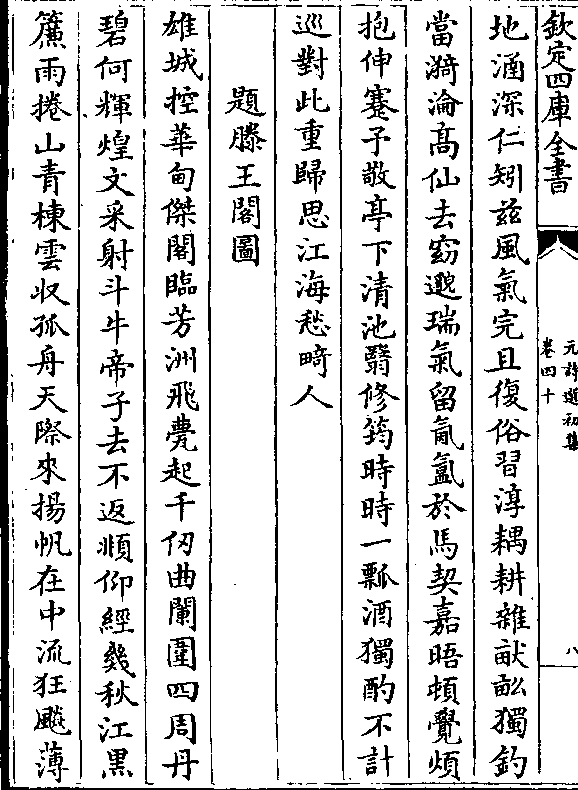 欽定四庫全書
元詩選初集
卷四十
八
地涵深仁矧兹風氣完且復俗習淳耦耕雜畎畝獨釣
當漪淪髙仙去窈邈瑞氣留氤氲於焉契嘉晤頓覺煩
抱伸蹇予敬亭下清池翳修筠時時一瓢酒獨酌不計
巡對此重歸思江海愁畸人
題滕王閣圖
雄城控華甸傑閣臨芳洲飛甍起千仞曲闌圍四周丹
碧何輝煌文采射斗牛帝子去不返頫仰經幾秋江黒
簾雨捲山青棟雲收孤舟天際來揚帆在中流狂飈薄